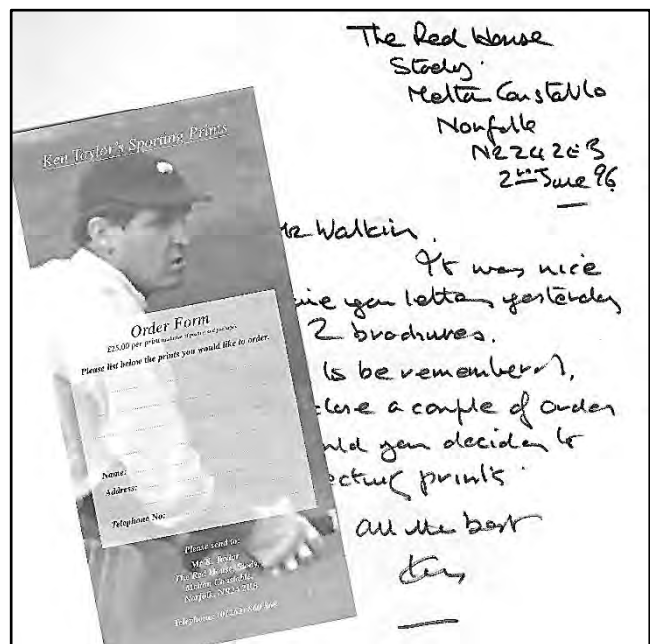 The Red House
Stody.
Melton Constable
Norfolk
NR24 2EB
2nd June 96
Walkin,
It was nice
your letter yesterday
2 brochures.
to be remembered,
close a couple of order
you decide to
prints.
All the best
Ken
Ken Taylor's Sporting Prints
Order Form
£25.00 per print
Please list below the prints you would like to order.
Name:
Address:
Telephone No:
Please send to:
Mr K. Taylor
The Red House, Stody,
Melton Constable,
Norfolk, NR24 2EB
Telephone: